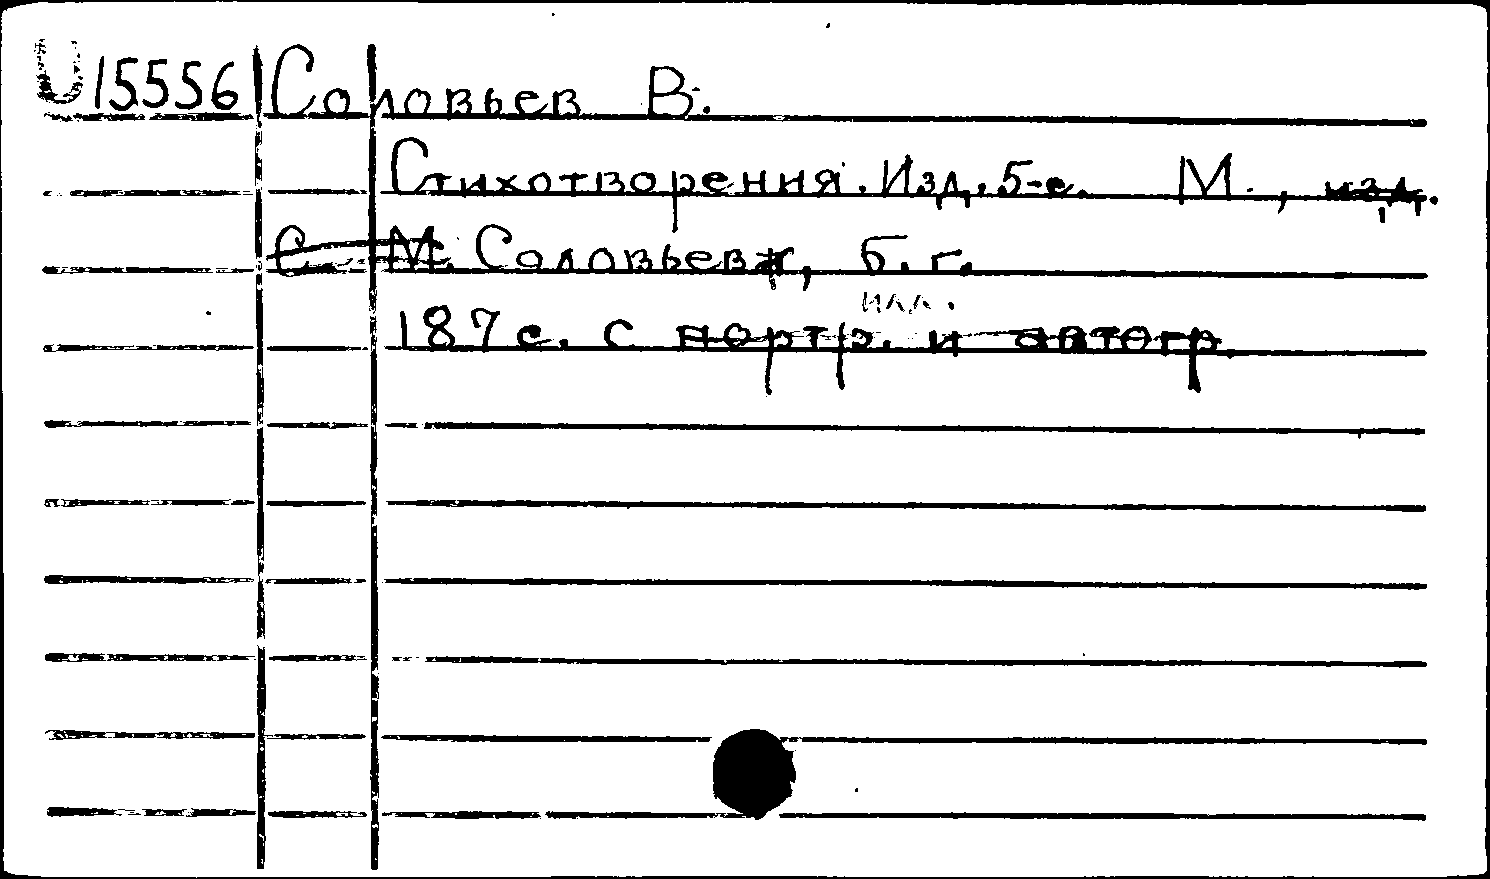 U15556 Соловьев В.
Стихотворения. Изд. 5-е. М., изд.
С. М. Соловьева, б. г.
илл.
187 с. с портр. и автогр.